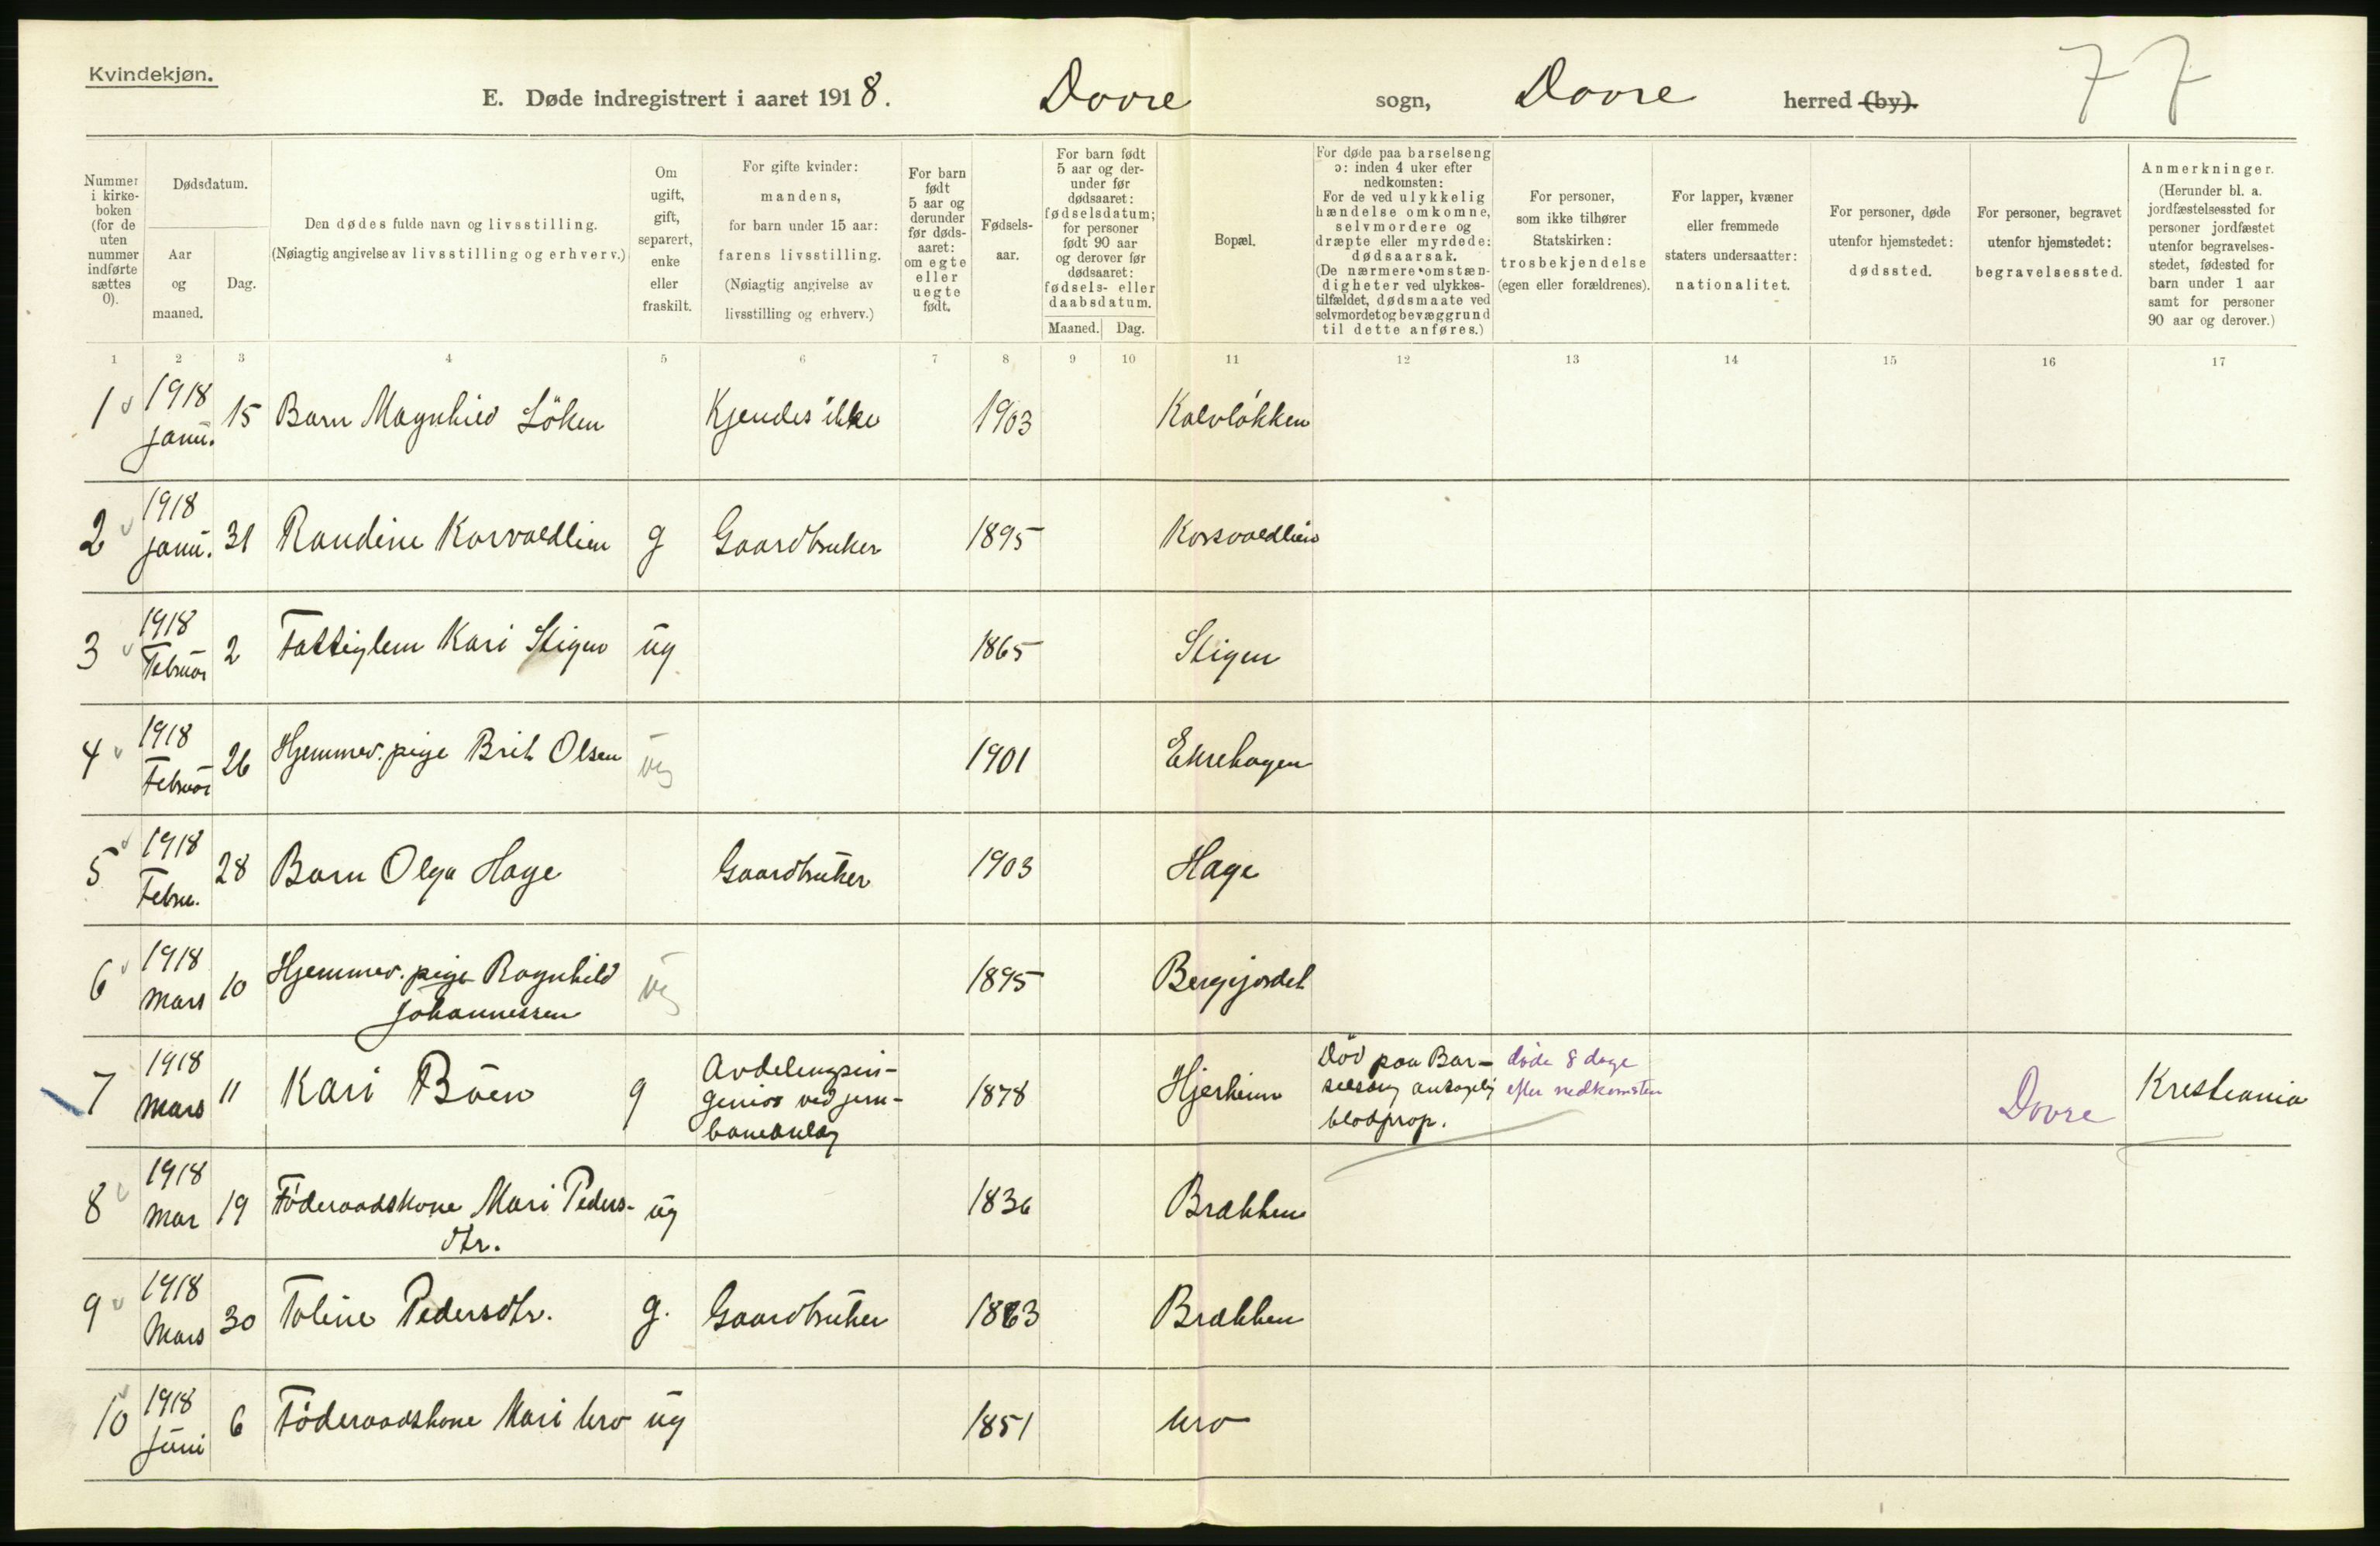 Kvindekjøn.
E. Døde indregistrert i aaret 1918. Dovre sogn, Dovre herred (by).
77
Nummer i kirkeboken (for de uten nummer indførte sættes 0).
Dødsdatum.
Aar og maaned.
Dag.
Den dødes fulde navn og livsstilling.
(Nøiagtig angivelse av livsstilling og erhverv.)
Om ugift, gift, separert, enke eller fraskilt.
For gifte kvinder:
mandens,
for barn under 15 aar:
farens livsstilling.
(Nøiagtig angivelse av
livsstilling og erhverv.)
For barn født 5 aar og derunder før dødsaaret: om egte eller uegte født.
Fødselsaar.
For barn født 5 aar og derunder før dødsaaret: fødselsdatum; for personer født 90 aar og derover før dødsaaret: fødsels- eller daabsdatum.
Maaned. Dag.
Bopæl.
For døde paa barselseng ɔ: inden 4 uker efter nedkomsten:
For de ved ulykkelig hændelse omkomne, selvmordere og dræpte eller myrdede: dødsaarsak.
(De nærmere omstændigheter ved ulykkestilfældet, dødsmaate ved selvmordet og bevæggrund til dette anføres.)
For personer, som ikke tilhører Statskirken: trosbekjendelse (egen eller forældrenes).
For lapper, kvæner eller fremmede staters undersaatter: nationalitet.
For personer, døde utenfor hjemstedet: dødssted.
For personer, begravet utenfor hjemstedet: begravelsessted.
Anmerkninger.
(Herunder bl. a. jordfæstelsessted for personer jordfæstet utenfor begravelsesstedet, fødested for barn under 1 aar samt for personer 90 aar og derover.)
1 2 3 4 5 6 7 8 9 10 11 12 13 14 15 16 17
1 1918 Janu. 15 Barn Magnhild Löken Kjendes ikke 1903 Kalvløkken
2 1918 Janu. 31 Randine Korsvoldlien g Gaardbruker 1895 Korsvoldlien
3 1918 Februar 2 Fattiglem Kari Stigen ug 1865 Stigen
4 1918 Februar 26 Hjemmev. pige Brit Olsen ug 1901 Ekrehagen
5 1918 Febru. 28 Barn Olga Hage Gaardbruker 1903 Hage
6 1918 Mars 10 Hjemmev. pige Ragnhild Johannessen ug 1895 Bergejordet
7 1918 Mars 11 Kari Böen g Avdelingsingeniør ved jernbaneanlæg 1878 Hjerkinn Död paa Barselseng antagelig blodprop. døde 8 dage efter nedkomsten Dovre Kristiania
8 1918 Mar 19 Föderaadskone Mari Pedersdtr. ug 1836 Brækken
9 1918 Mars 30 Toline Pedersdtr. g. Gaardbruker 1863 Brækken
10 1918 Juni 6 Föderaadskone Mari Uro ug 1851 Uro